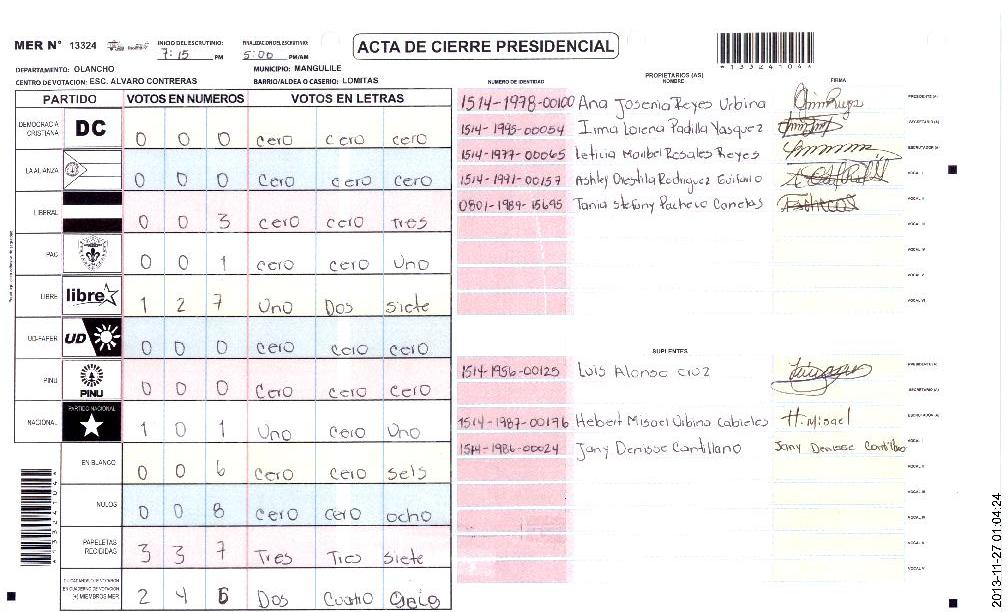 MER N° 13324
INICIO DEL ESCRUTINIO: 7:15 PM
FINALIZACION DEL ESCRUTINIO: 5:00 PM/AM
ACTA DE CIERRE PRESIDENCIAL
DEPARTAMENTO: OLANCHO MUNICIPIO: MANGULILE
CENTRO DE VOTACION: ESC. ALVARO CONTRERAS BARRIO/ALDEA O CASERIO: LOMITAS
PARTIDO VOTOS EN NUMEROS VOTOS EN LETRAS
DEMOCRACIA CRISTIANA DC 0 0 0 cero cero cero
LA ALIANZA 0 0 0 cero cero cero
LIBERAL 0 0 3 cero cero Tres
PAC 0 0 1 cero cero Uno
LIBRE libre 1 2 7 Uno Dos siete
UD-FAPER UD 0 0 0 cero cero cero
PINU PINU 0 0 0 cero cero cero
NACIONAL PARTIDO NACIONAL 1 0 1 Uno cero Uno
EN BLANCO 0 0 6 cero cero seis
NULOS 0 0 8 cero cero ocho
PAPELETAS RECIBIDAS 3 3 7 Tres Tres siete
CIUDADANOS QUE VOTARON EN CUADERNO DE VOTACION (+) MIEMBROS MER 2 4 6 Dos Cuatro Seis
*13324104*
NUMERO DE IDENTIDAD PROPIETARIOS (AS) NOMBRE FIRMA
1514-1978-00100 Ana Josenia Reyes Urbina PRESIDENTE (A)
1514-1995-00054 Irma Lorena Padilla Vasquez SECRETARIO (A)
1514-1977-00065 Leticia Maribel Rosales Reyes ESCRUTADOR (A)
1514-1991-00157 Ashley Orestila Rodriguez VOCAL I
0801-1989-15695 Tania Stefany Pacheco Canelas VOCAL II
VOCAL III
VOCAL IV
VOCAL V
VOCAL VI
SUPLENTES
1514-1956-00125 Luis Alonso Cruz PRESIDENTE (A)
SECRETARIO (A)
1514-1987-00196 Hebert Misael Urbina H. Misael ESCRUTADOR (A)
1514-1986-00024 Jany Denisse Cantillano Jany Denisse Cantillano VOCAL I
VOCAL II
VOCAL III
VOCAL IV
VOCAL V
2013-11-27 01:04:24